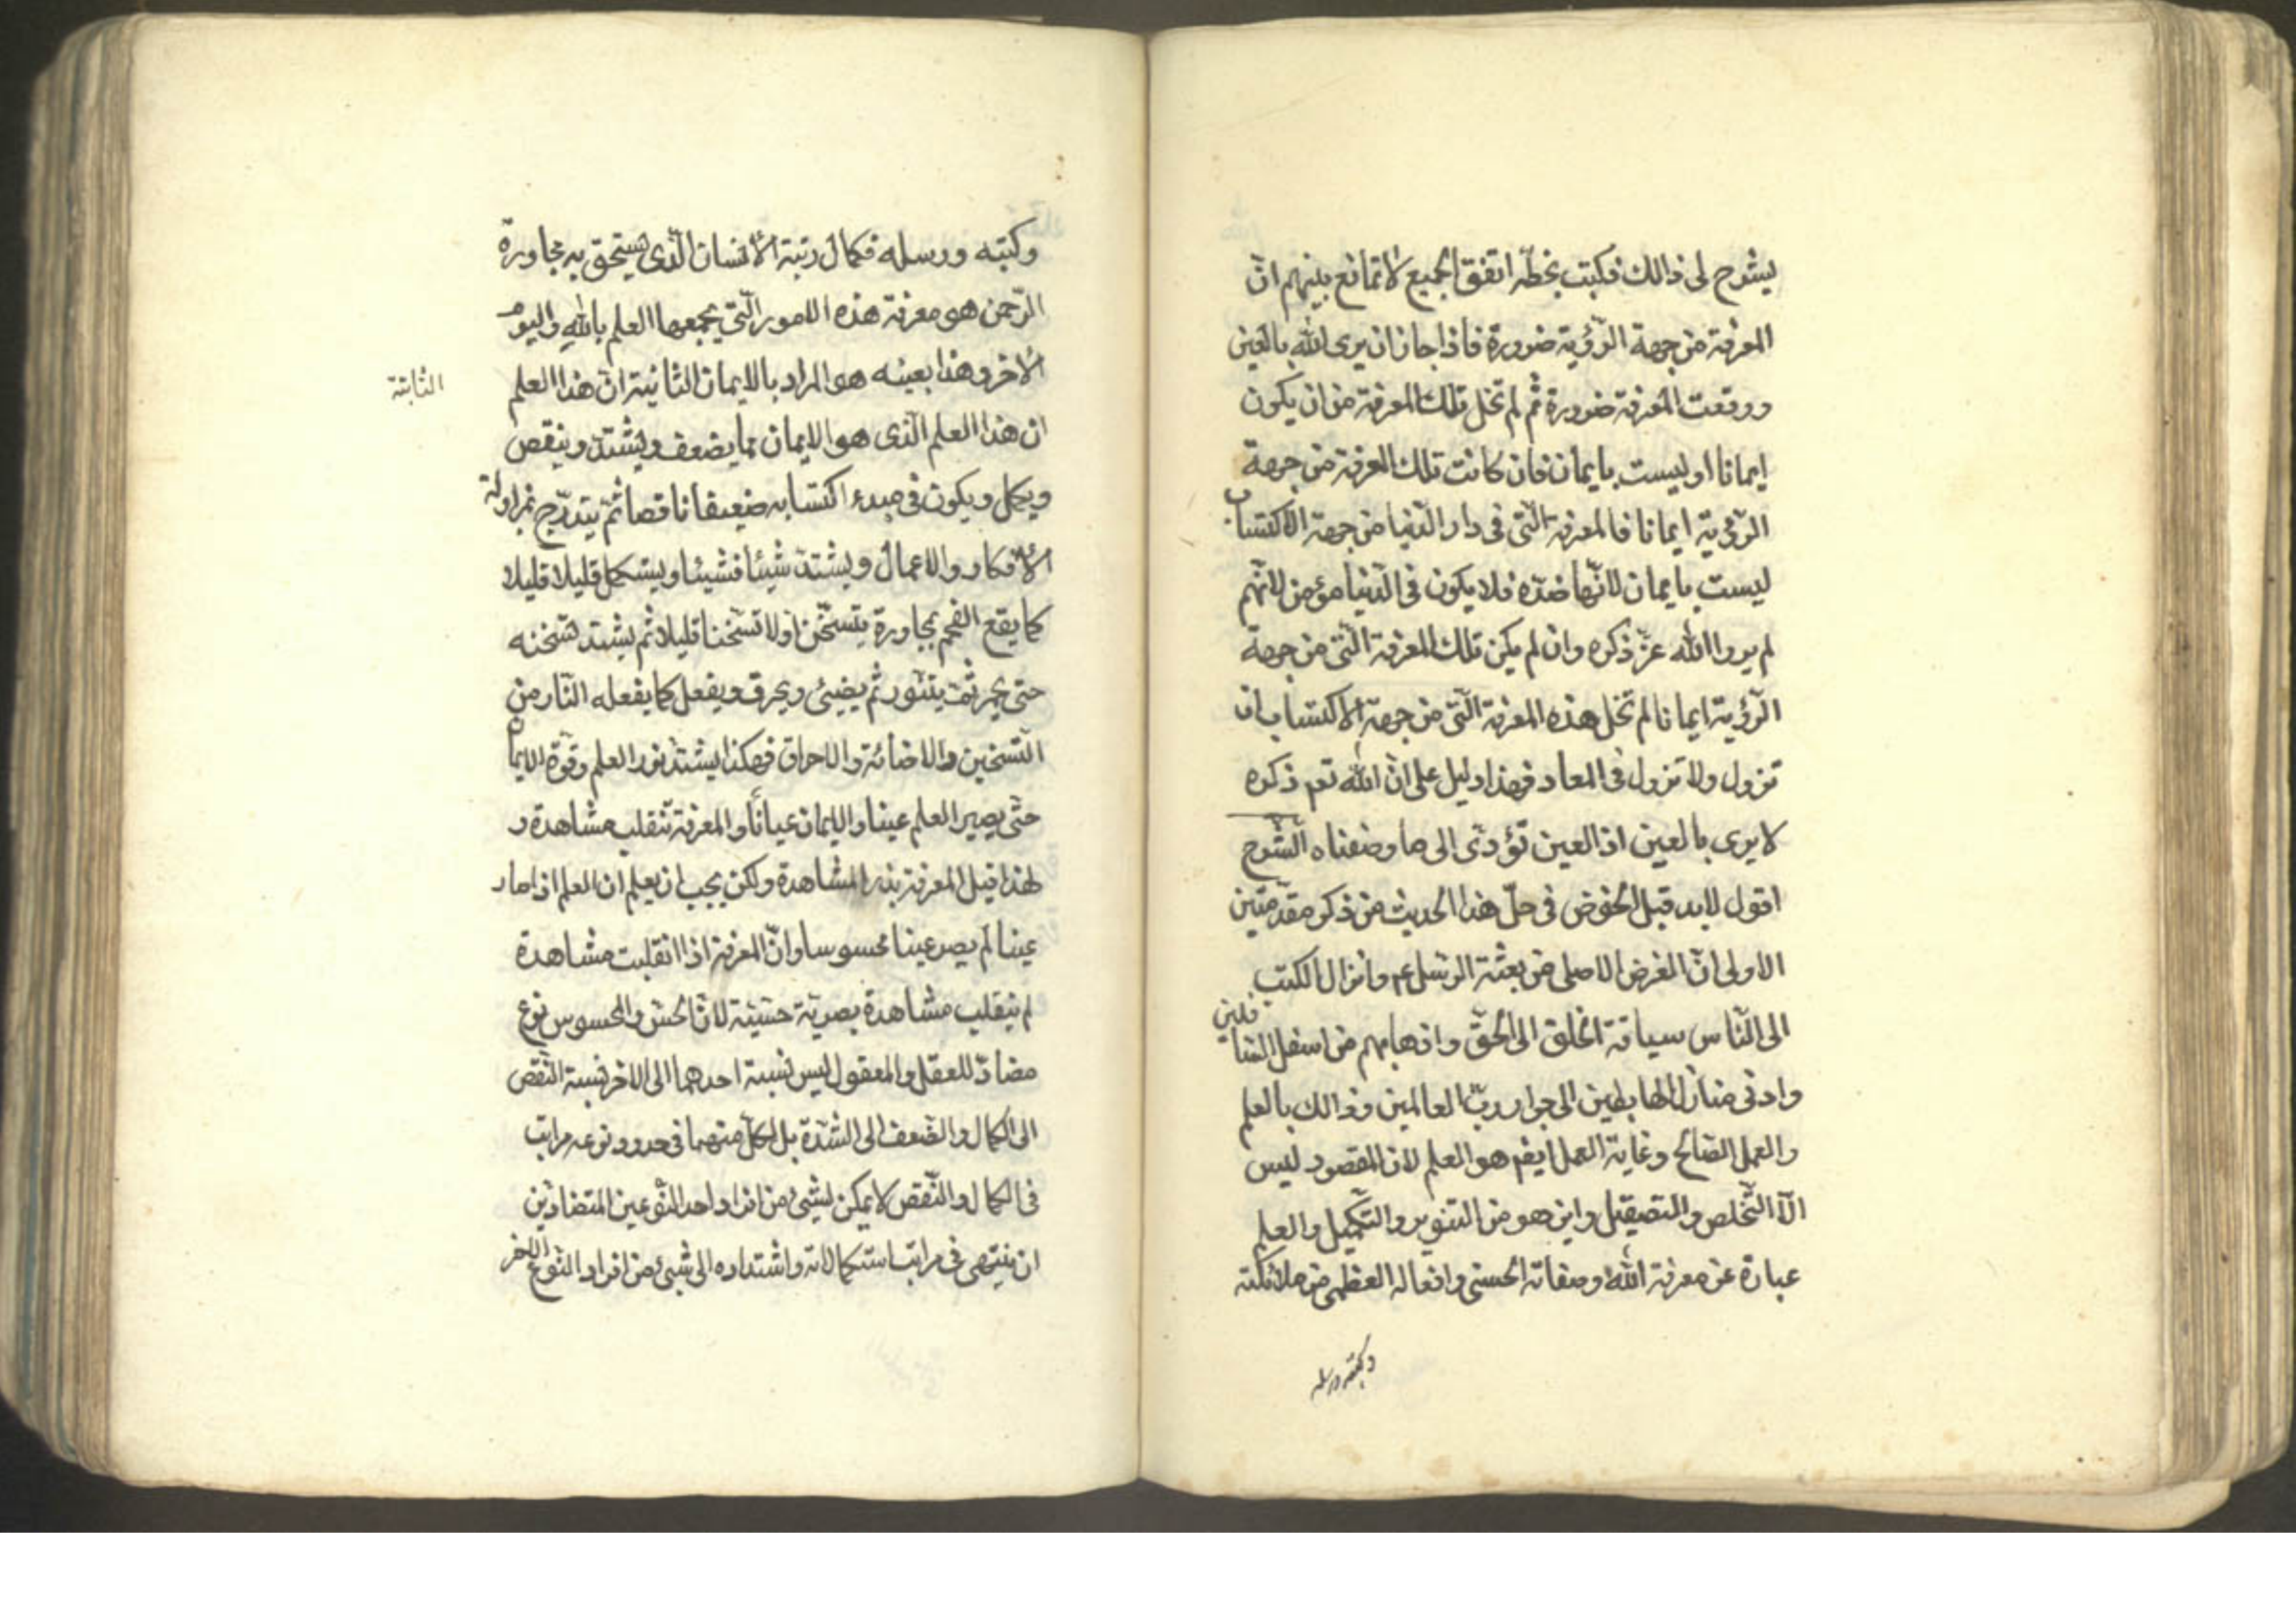 ليشرح لى ذالك فكتب بخطّه اتفق الجميع لا تمانع بينهم انّ
المعرفة من جهة الرّؤية ضرورة فاذا جاز ان يرى اللّه بالعين
ووقعت المعرفة ضرورة ثم لم تخل تلك المعرفة من ان يكون
ايمانا او ليست بايمان فان كانت تلك المعرفة من جهة
الرّؤية ايمانا فالمعرفة الّتى فى دار الدّنيا من جهة الاكتساب
ليست بايمان لانّها ضدّه فلا يكون فى الدّنيا مؤمن لانّهم
لم يروا اللّه عزّ ذكره وان لم يكن تلك المعرفة الّتى من جهة
الرّؤية ايمانا لم تخل هذه المعرفة الّتى من جهة الاكتساب ان
تزول ولا تزول فى المعاد فهذا دليل على انّ اللّه تعم ذكره
لا يرى بالعين اذ العين تؤدّى الى ما وصفناه الشّرح
اقول لابد قبل الخوض فى حلّ هذا الحديث من ذكر مقدّمتين
الاولى انّ الغرض الاصلى من بعثة الرّسل عم وانزال الكتب
الى النّاس سياقة الخلق الى الحقّ واذهابهم من اسفل السّافلين
وادنى منازل الهابطين الى جوار ربّ العالمين وذالك بالعلم
والعمل الصّالح وغاية العمل ايضم هو العلم لان المقصود ليس
الّا التّخلص والتصيقل واين هو من التنوير والتّكميل والعلم
عبارة عن معرفة اللّه وصفاته الحسنى وافعاله العظمى من ملائكته
وكتبه ورسله
وكتبه ورسله فكمال رتبة الأنسان الّذى يستحق به مجاورة
الرّحمن هى معرفة هذه الامور الّتى يجمعها العلم باللّه واليوم
الأخر وهذا بعينه هو المراد بالايمان الثانية انّ هذا العلم
الثانية
ان هذا العلم الّذى هو الايمان مما يضعف ويشتدّ وينقص
ويكمل ويكون فى مبدء اكتسابه ضعيفا ناقصا ثمّ يتدرّج بمزاولة
الأفكار والاعمال ويشتدّ شيئا فشيئا ويستكمل قليلا قليلا
كما يقع الفحم بمجاورة يتسخّن اولا تسخنا قليلا ثم يشتد تسخنه
حتى يحمر ثمّ يتنوّر ثم يضيئ ويحرق ويفعل كما يفعله النّار من
التسخين والاضائة والاحراق فهكذا يشتدّ نور العلم وقوّة الايمان
حتّى يصير العلم عينا والايمان عيانا والمعرفة تنقلب مشاهدة و
لهذا قيل المعرفة بذر المشاهدة ولكن يجب ان يعلم ان العلم اذا صار
عينا لم يصر عينا محسوسا وانّ المعرفة اذا انقلبت مشاهدة
لم ينقلب مشاهدة بصريّة حسّيّة لانّ الحسّ والمحسوس نوع
مضادّ للعقل والمعقول ليس نسبة احدهما الى الاخر نسبة النّقص
الى الكمال والضّعف الى الشدّة بل لكلّ منهما فى حدود نوعه مراتب
فى الكمال والنّقص لا يمكن لشيئ من افراد احد النّوعين المتضادّين
ان ينتهى فى مراتب استكمالاته واشتداده الى شيئ من افراد النّوع الاخر